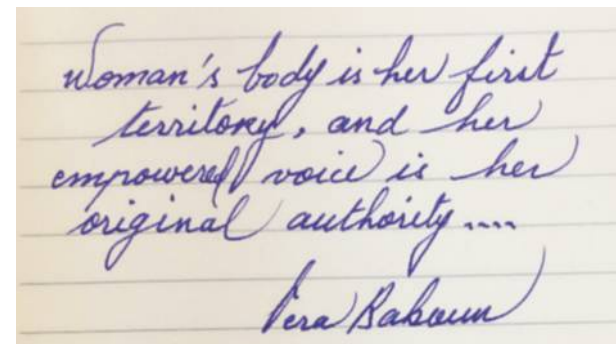 Woman's body is her first
territory, and her
empowered voice is her
original authority....
Vera Baboun